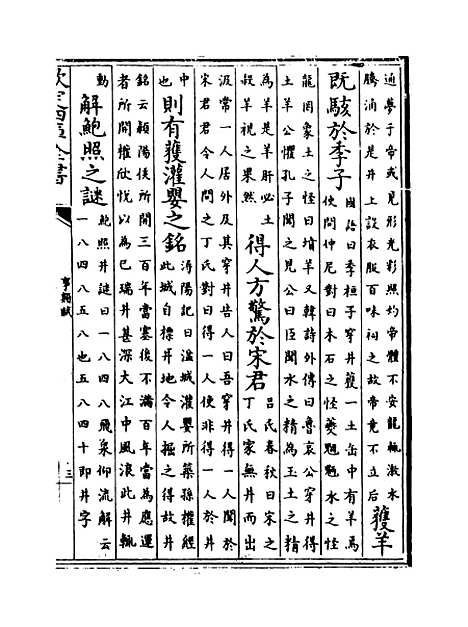 通夢于帝或見形光彩照灼帝體不安龍輒激水
騰涌於是井上設衣服百味祠之故帝竟不立后
獲羊
既駭於季子
國語曰季桓子穿井獲一土缶中有羊焉
使問仲尼對曰木石之怪夔魍魎水之怪
龍罔象土之怪曰墳羊又韓詩外傳曰魯哀公穿井得
土羊公懼孔子聞之見公曰臣聞水之精為玉土之精
為羊是羊肝必土
殺羊視之果然
得人方驚於宋君
呂氏春秋曰宋之
丁氏家無井而出
汲常一人居外及其穿井告人曰吾穿井得一人聞於
宋君君令人問之丁氏對曰得一人使非得一人於井
中
也
則有獲灌嬰之銘
潯陽記曰湓城灌嬰所築孫權經
此城自標井地令人掘之得故井
銘云潁陽侯所開三百年當塞後不滿百年當為應運
者所開權欣悅以為已瑞井甚深大江中風浪此井輒
動
解鮑照之謎
鮑照井謎曰一八四八飛泉仰流解云
一八四八五八也五八四十即井字
欽定四庫全書
事類賦
三